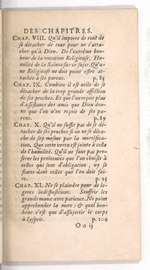 DES CHAPITRES.
CHAP. VIII. Qu'il importe de tout de
se détacher de tout pour ne s'atta-
cher qu'à Dieu. De l'extrême bon-
heur de la vocation Religieuse. Hu-
milité de la Sainte sur ce sujet. Qu'u-
ne Religieuse ne doit point estre at-
tachée à ses parens. p. 85
CHAP. IX. Combien il est utile de se
détacher de la trop grande affection
de ses proches. Et que l'on reçoit plus
d'assistance des amis que Dieu don-
ne que l'on n'en reçoit de ses pa-
rens. p. 89
CHAP. X. Qu'il ne suffit pas de se déta-
cher de ses proches si on ne se déta-
che de soy mesme par la mortifica-
tion. Que cette vertu est jointe à celle
de l'humilité. Qu'il ne faut pas pre-
ferer les penitences que l'on choisit à
celles qui sont d'obligation, ny se
flatter dans celles que l'on doit fai-
re. p. 95
CHAP. XI. Ne se plaindre pour de le-
geres indispositions. Souffrir les
grands maux avec patience. Ne point
apprehender la mort; & quel bon-
heur c'est que d'assujettir le corps
à l'esprit. p. 102
O o ij